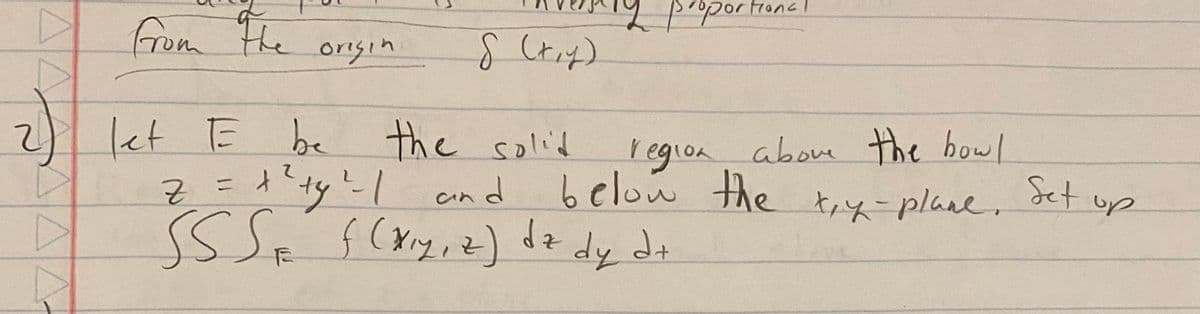 proportional
from the origin δ (x,y)
2) let E be the solid region above the bowl
z = x²+y²-1 and below the x,y-plane. Set up
∫∫∫_E f(x,y,z) dz dy dx